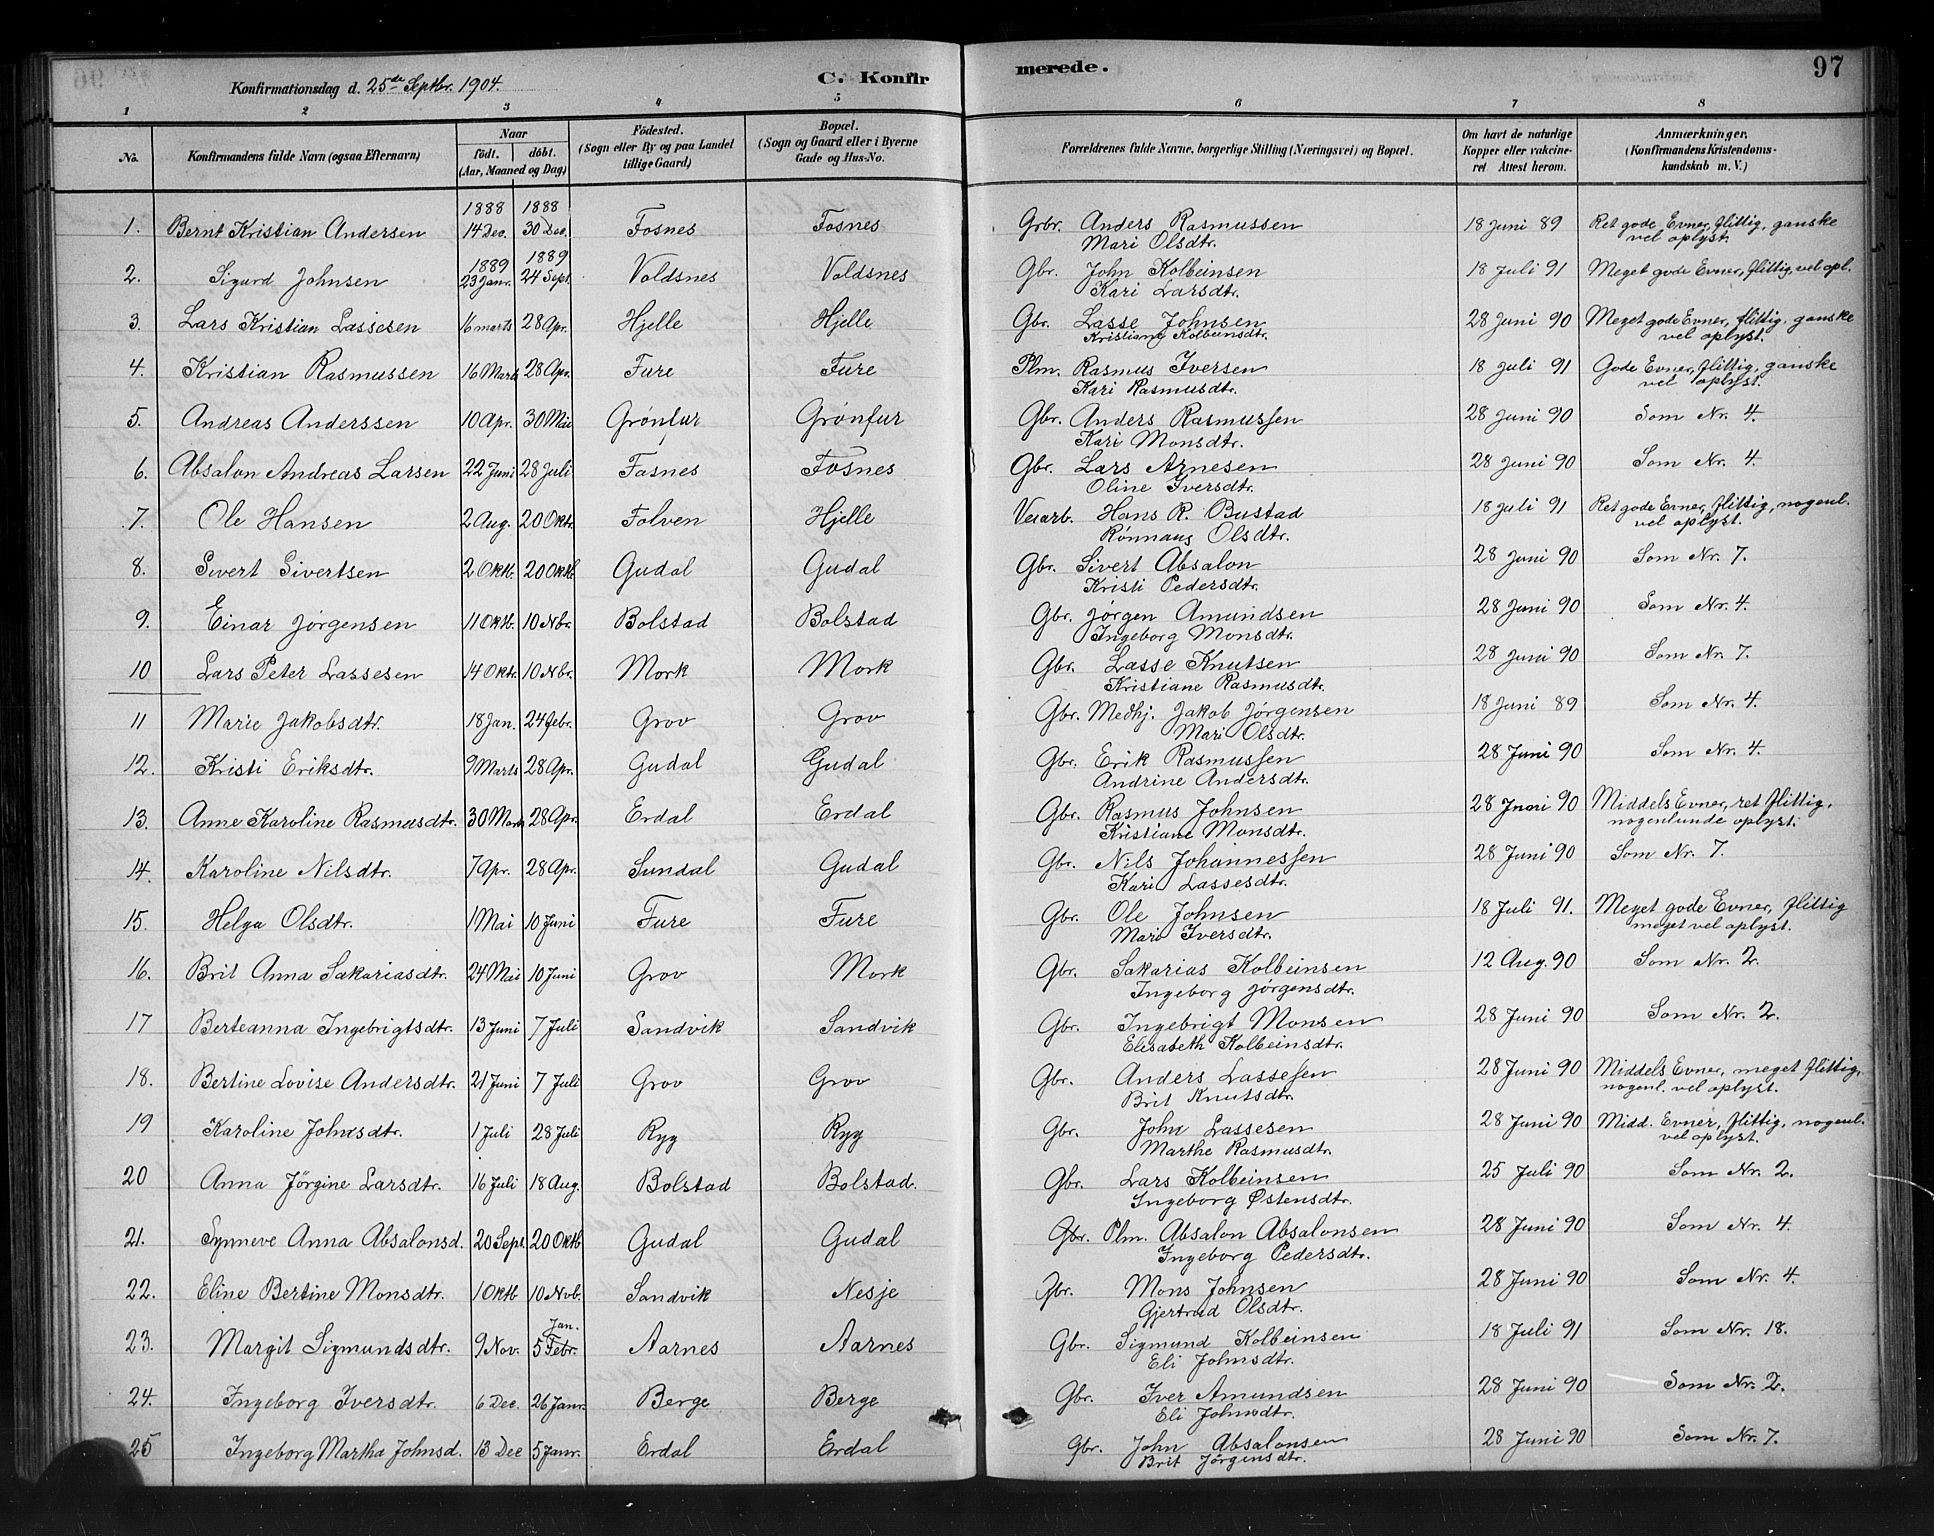 Konfirmationsdag d. 25de Septbr. 1904. C. Konfirmerede. 97
1 2 3 4 5 6 7 8
No. Konfirmandens fulde Navn (ogsaa Efternavn) Naar født. døbt. (Aar, Maaned og Dag) Fødested. (Sogn eller By og paa Landet tillige Gaard) Bopæl. (Sogn og Gaard eller i Byerne Gade og Hus-No. Forældrenes fulde Navne, borgerlige Stilling (Næringsvei) og Bopæl. Om havt de naturlige Kopper eller vakcineret Attest herom. Anmærkninger. (Konfirmandens Kristendomskundskab m. V.)
1888 1888
1. Bernt Kristian Andersen 14 Dec. 30 Dec. Fosnes Fosnes Grbr. Anders Rasmussen 18 Juni 89 Ret gode Evner, flittig, ganske
Mari Olsdtr. vel oplyst.
1889 1889
2. Sigurd Johnsen 23 Janr. 24 Sept. Voldsnes Voldsnes Gbr. John Kolbeinsen 18 Juli 91 Meget gode Evner, flittig, vel opl.
Kari Larsdtr.
3. Lars Kristian Lassesen 16 marts 28 Apr. Hjelle Hjelle Gbr. Lasse Johnsen 28 Juni 90 Meget gode Evner, flittig, ganske
Kristiane Kolbeinsdtr. vel oplyst.
4. Kristian Rasmussen 16 Marts 28 Apr. Fure Fure Plm. Rasmus Iversen 18 Juli 91 Gode Evner, flittig, ganske
Kari Rasmusdtr. vel oplyst.
5. Andreas Anderssen 10 Apr. 30 Mai Grønfur Grønfur Gbr. Anders Rasmussen 28 Juni 90 Som Nr. 4.
Kari Monsdtr.
6. Absalon Andreas Larsen 22 Juni 28 Juli Fosnes Fosnes Gbr. Lars Arnesen 28 Juni 90 Som Nr. 4.
Oline Iversdtr.
7. Ole Hansen 2 Aug. 20 Oktr. Folven Hjelle Veiarb. Hans R. Bustad 18 Juli 91 Ret gode Evner, flittig, nogenl.
Rønnaug Olsdtr. vel oplyst.
8. Sivert Sivertsen 2 Oktb. 20 Oktb Gudal Gudal Gbr. Sivert Absalon 28 Juni 90 Som Nr. 7.
Kristi Pedersdtr.
9. Einar Jørgensen 11 Oktb. 10 Nbr. Bolstad Bolstad Gbr. Jørgen Amundsen 28 Juni 90 Som Nr. 4.
Ingeborg Monsdtr.
10 Lars Peter Lassesen 14 Oktr. 10 Nbr. Mork Mork Gbr. Lasse Knutsen 28 Juni 90 Som Nr. 7.
Kristiane Rasmusdtr.
11 Marie Jakobsdtr. 18 Jan. 24 febr. Grov Grov Gbr. Medhj. Jakob Jørgensen 18 Juni 89 Som Nr. 4.
Mari Olsdtr.
12. Kristi Eriksdtr. 9 Marts 28 Apr. Gudal Gudal Gbr. Erik Rasmussen 28 Juni 90 Som Nr. 4
Andrine Andersdtr.
13. Anne Karoline Rasmusdtr. 30 Marts 28 Apr. Erdal Erdal Gbr. Rasmus Johnsen 28 Juni 90 Middels Evner, ret flittig,
Kristiane Monsdtr. nogenlunde oplyst.
14. Karoline Nilsdtr. 7 Apr. 28 Apr. Sundal Gudal Gbr. Nils Johannessen 28 Juni 90 Som Nr. 7.
Kari Lassesdtr.
15. Helga Olsdtr. 1 Mai 10 Juni Fure Fure Gbr. Ole Johnsen 18 Juli 91. Meget gode Evner, flittig
Mari Iversdtr. meget vel oplyst.
16. Brit Anna Sakariasdtr. 24 Mai 10 Juni Grov Mork Gbr. Sakarias Kolbeinsen 12 Aug. 90 Som Nr. 2.
Ingeborg Jørgensdtr.
17 Berteanna Ingebrigtsdtr. 13 Juni 7 Juli Sandvik Sandvik Gbr. Ingebrigt Monsen 28 Juni 90 Som Nr. 2.
Elisabeth Kolbeinsdtr.
18. Bertine Lovise Andersdtr. 21 Juni 7 Juli Grov Grov Gbr. Anders Lassesen 28 Juni 90 Middels Evner, meget flittig,
Brit Knutsdtr. nogenl. vel oplyst.
19 Karoline Johnsdtr. 1 Juli 28 Juli Ryg Ryg Gbr. John Lassesen 28 Juni 90 Midd. Evner, flittig, nogenl.
Marthe Rasmusdtr. vel oplyst.
20 Anna Jørgine Larsdtr. 16 Juli 18 Aug. Bolstad Bolstad. Gbr. Lars Kolbeinsen 25 Juli 90 Som Nr. 2.
Ingeborg Østensdtr.
21. Synneve Anna Absalonsd. 20 Sept. 20 Oktb Gudal Gudal Gbr. Plm. Absalon Absalonsen 28 Juni 90 Som Nr. 4
Ingeborg Pedersdtr.
22. Eline Bertine Monsdtr. 1 Oktb 10 Novb. Sandvik Nesje Gbr. Mons Johnsen 28 Juni 90 Som Nr. 4.
Gjertrud Olsdtr.
Jan.
23. Margit Sigmundsdtr. 9 Nov. 5 Febr. Aarnes Aarnes Gbr. Sigmund Kolbeinsen 18 Juli 91 Som Nr. 18.
Eli Johnsdtr.
24. Ingeborg Iversdtr. 6 Dec. 26 Janr. Berge Berge Gbr. Iver Amundsen 28 Juni 90 Som Nr. 2.
Eli Johnsdtr.
25 Ingeborg Martha Johnsd. 13 Dec 5 Janr. Erdal Erdal Gbr. John Absalonsen 28 Juni 90 Som Nr. 7.
Brit Jørgensdtr.